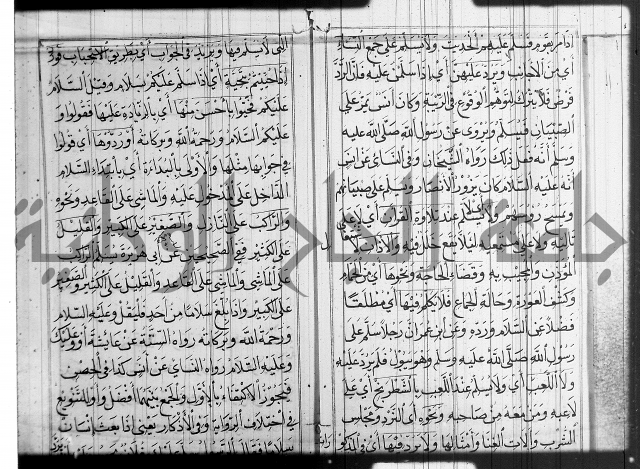 اذا مر بقوم فسلم عليهم الحديث ولا يسلم على جمع النساء
أي من الاجانب ويرد عليهن أي اذا سلمن عليه فان الرد
فرض فلا يترك لتوهم الوقوع في الريبة وكان انس يمر على
الصبيان فيسلم ويروى عن رسول الله صلى الله عليه
وسلم أنه فعل ذلك رواه الشيخان وفي النسائي عن انس
أنه عليه السلام كان يزور الانصار ويسلم على صبيانهم
ويمسح روسهم ولا يسلم عند تلاوة القرآن أي لا على
تاليه ولا على مستمعيه لئلا يقع خلل فيه والاذان
المؤذن والمجيب به وقضاء الحاجة ونحوها أي من الحمام
وكشف العورة وحالة الجماع فلا يكلم فيها أي مطلقا
فضلا عن السلام ورده وعن ابن عمر ان رجلا سلم على
رسول الله صلى الله عليه وسلم وهو يبول فلم يرد عليه
ولا اللعب أي ولا يسلم عند اللعب بالشطرنج أي على
لاعبه ومن معه من صاحبه ونحوه أي النرد ومجلس
الشرب وآلات الغنا وأمثالها ولا يرد فيها أي في المذكورات
التي لا يسلم فيها ويزيد في الجواب أي بطريق الاستحباب
اذا حييتم بتحية أي اذا سلم عليكم بسلام وقيل السلام
عليكم فحيوا بأحسن منها أي بالزيادة عليها فقولوا و
عليكم السلام ورحمة الله وبركاته أو ردوها أي قولوا
في جوابها مثلها والأولى بالبداءة أي بابتداء السلام
الداخل على المدخول عليه والماشي على القاعد ونحوه
والراكب على النازل والصغير على الكبير والقليل
على الكثير ففي الصحيحين عن ابي هريرة يسلم الراكب
على الماشي والماشي على القاعد والقليل على الكثير والصغير
على الكبير واذا بلغ سلاما من احد فليقل وعليه السلام
ورحمة الله وبركاته رواه الستة عن عائشة أو وعليك
وعليه السلام رواه النسائي عن انس كذا في الحصن
فيجوز الاكتفاء بالأول والجمع بينهما أفضل واو للتنويع
في اختلاف الرواية وفي الأذكار يعني اذا بعث انسان
جامعة النجاح الوطنية